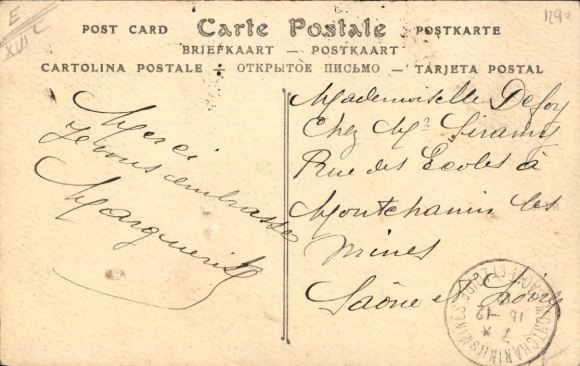 E
XVI C
1290
POST CARD Carte Postale POSTKARTE
BRIEFKAART — POSTKAART
CARTOLINA POSTALE — ОТКРЫТОЕ ПИСЬМО — TARJETA POSTAL
Merci
Je vous embrasse
Marguerite
Mademoiselle Defoy
Chez Mr
Rue des Ecoles à
Montchanin les
mines
Saône et Loire
MONTCHANIN-LES-MINES
16 -12
7 *